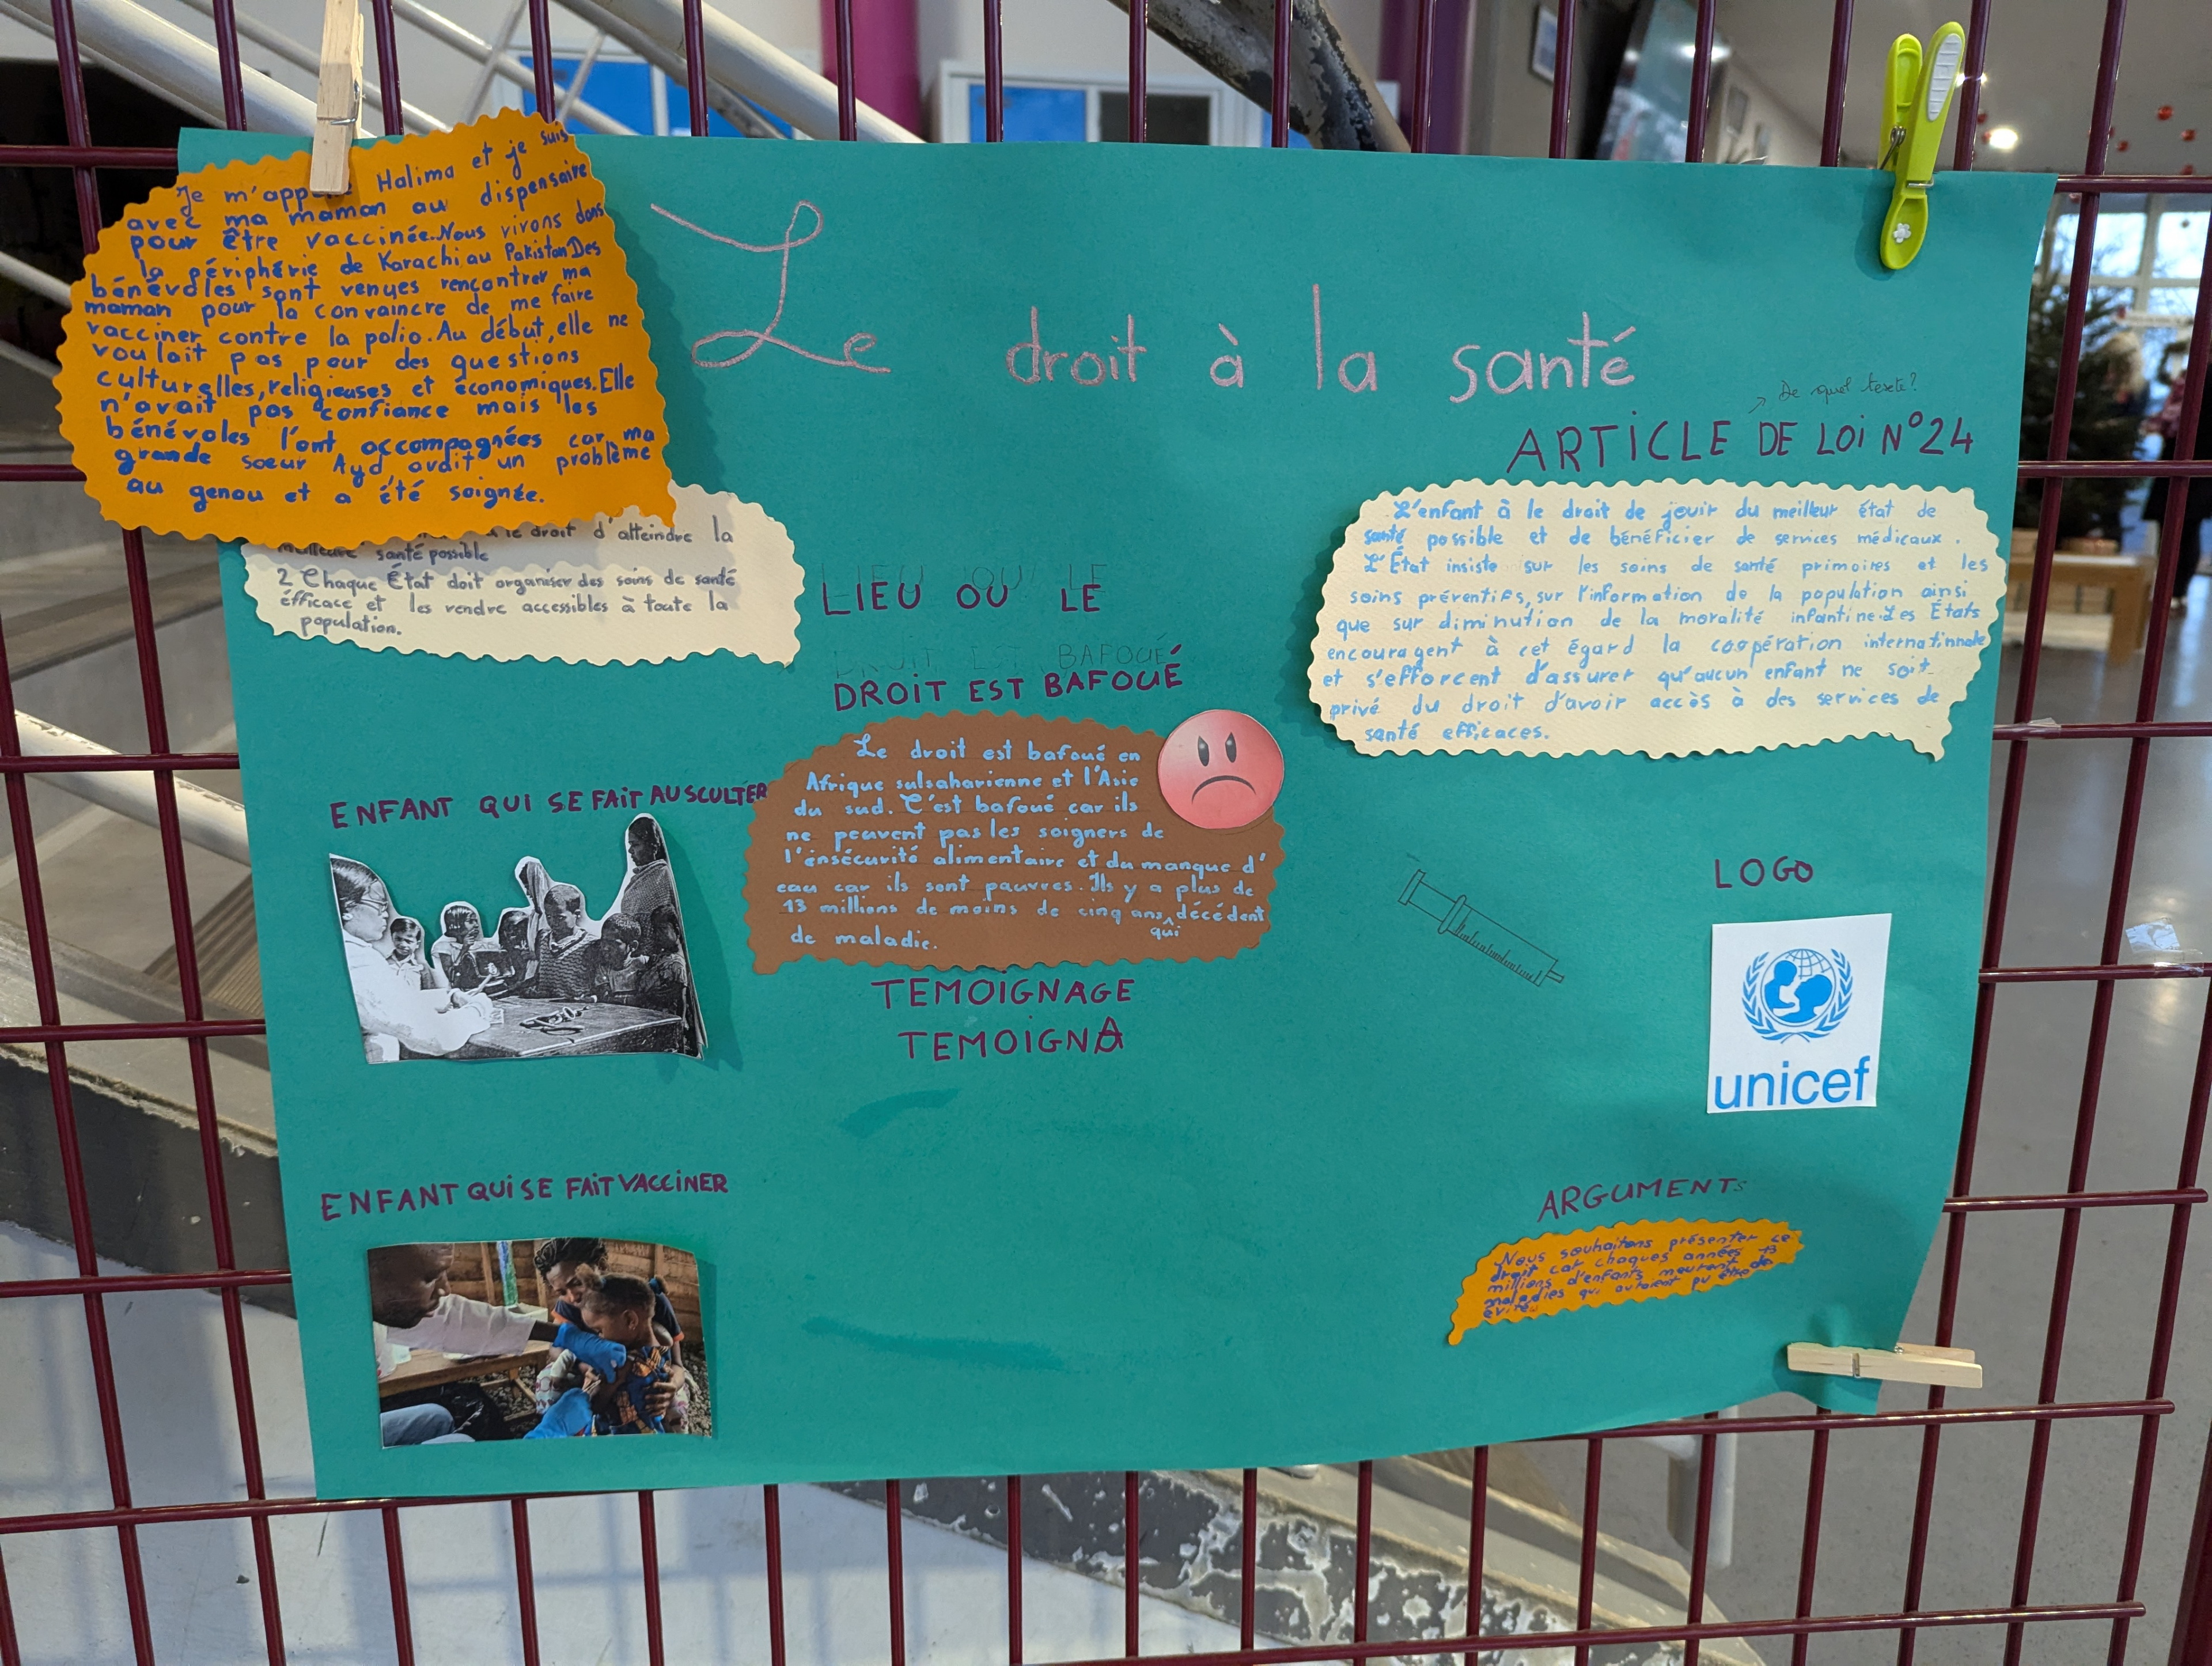 Je m'app Halima et je suis
avec ma maman au dispensaire
pour être vaccinée. Nous vivons dans
la périphérie de Karachi au Pakistan Des
bénévoles sont venues rencontrer ma
maman pour la convaincre de me faire
vacciner contre la polio. Au début, elle ne
voulait pas pour des questions
culturelles, religieuses et économiques. Elle
n'avait pas confiance mais les
bénévoles l'ont accompagnées car ma
grande soeur Ayd avait un problème
au genou et a été soignée.
le droit d'atteindre la
meilleure santé possible
2 Chaque État doit organiser des soins de santé
éfficace et les rendre accessibles à toute la
population.
Le droit à la santé
De quel texte?
ARTICLE DE LOI N°24
L'enfant à le droit de jouir du meilleur état de
santé possible et de bénéficier de services médicaux.
L'État insiste sur les soins de santé primaires et les
soins préventifs, sur l'information de la population ainsi
que sur diminution de la moralité infantine. Les États
encouragent à cet égard la coopération internatinnale
et s'efforcent d'assurer qu'aucun enfant ne soit
privé du droit d'avoir accès à des services de
santé efficaces.
LIEU OU LE
LIEU OU LE
DROIT EST BAFOUÉ
DROIT EST BAFOUÉ
Le droit est bafoué en
Afrique sulsaharienne et l'Asie
du sud. C'est bafoué car ils
ne peuvent pas les soigners de
l'ensécurité alimentaire et du manque d'
eau car ils sont pauvres. Ils y a plus de
13 millions de moins de cinq ans décédent
qui
de maladie.
ENFANT QUI SE FAIT AUSCULTÉR
TEMOIGNAGE
TEMOIGNA
LOGO
unicef
ENFANT QUI SE FAIT VACCINER
ARGUMENTS
Nous souhaitons présenter ce
droit car chaques années 13
millions d'enfants meurent de
maladies qui auraient pu être
évités